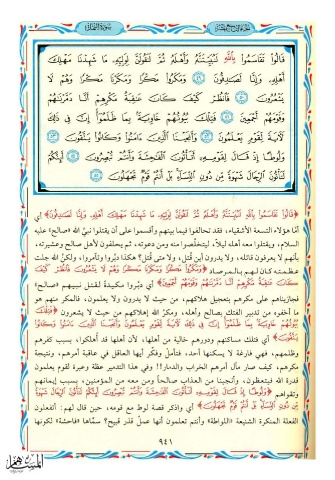 قَالُوا۟ تَقَاسَمُوا۟ بِٱللَّهِ لَنُبَيِّتَنَّهُۥ وَأَهْلَهُۥ ثُمَّ لَنَقُولَنَّ لِوَلِيِّهِۦ مَا شَهِدْنَا مَهْلِكَ
أَهْلِهِۦ وَإِنَّا لَصَٰدِقُونَ ٤٩ وَمَكَرُوا۟ مَكْرًا وَمَكَرْنَا مَكْرًا وَهُمْ لَا
يَشْعُرُونَ ٥٠ فَٱنظُرْ كَيْفَ كَانَ عَٰقِبَةُ مَكْرِهِمْ أَنَّا دَمَّرْنَٰهُمْ
وَقَوْمَهُمْ أَجْمَعِينَ ٥١ فَتِلْكَ بُيُوتُهُمْ خَاوِيَةًۢ بِمَا ظَلَمُوٓا۟ إِنَّ فِى ذَٰلِكَ
لَءَايَةً لِّقَوْمٍ يَعْلَمُونَ ٥٢ وَأَنجَيْنَا ٱلَّذِينَ ءَامَنُوا۟ وَكَانُوا۟ يَتَّقُونَ ٥٣
وَلُوطًا إِذْ قَالَ لِقَوْمِهِۦٓ أَتَأْتُونَ ٱلْفَٰحِشَةَ وَأَنتُمْ تُبْصِرُونَ ٥٤ أَئِنَّكُمْ
لَتَأْتُونَ ٱلرِّجَالَ شَهْوَةً مِّن دُونِ ٱلنِّسَآءِ بَلْ أَنتُمْ قَوْمٌ تَجْهَلُونَ ٥٥
﴿قَالُوا۟ تَقَاسَمُوا۟ بِٱللَّهِ لَنُبَيِّتَنَّهُۥ وَأَهْلَهُۥ ثُمَّ لَنَقُولَنَّ لِوَلِيِّهِۦ مَا شَهِدْنَا مَهْلِكَ أَهْلِهِۦ وَإِنَّا لَصَٰدِقُونَ﴾ أي
أنّ هؤلاء التسعة الأشقياء، قد تحالفوا فيما بينهم وأقسموا على أن يقتلوا نبيَّ الله «صالح» عليه
السلام، ويقتلوا معه أهله ليلاً، ليتخلّصوا منه ومن دعوته، ثم يحلفون لأهل صالح وعشيرته،
بأنهم لا يعرفون قاتله، ولا يدرون أين قُتل، ولا متى قُتل؟ هكذا دبّروا وتآمروا، ولكنَّ الله جلّت
عظمته كان لهم بالمرصاد ﴿وَمَكَرُوا۟ مَكْرًا وَمَكَرْنَا مَكْرًا وَهُمْ لَا يَشْعُرُونَ فَٱنظُرْ كَيْفَ
كَانَ عَٰقِبَةُ مَكْرِهِمْ أَنَّا دَمَّرْنَٰهُمْ وَقَوْمَهُمْ أَجْمَعِينَ﴾ أي دبّروا مكيدة لقتل نبيهم «صالح»
فجازيناهم على مكرهم بتعجيل هلاكهم، من حيث لا يدرون ولا يعلمون، فالمكر منهم هو
ما أخفوه من تدبير الفتك بصالح وأهله، ومكرُ الله إهلاكهم من حيث لا يشعرون ﴿فَتِلْكَ
بُيُوتُهُمْ خَاوِيَةًۢ بِمَا ظَلَمُوٓا۟ إِنَّ فِى ذَٰلِكَ لَءَايَةً لِّقَوْمٍ يَعْلَمُونَ وَأَنجَيْنَا ٱلَّذِينَ ءَامَنُوا۟ وَكَانُوا۟
يَتَّقُونَ﴾ أي فتلك مساكنهم ودورهم خالية من أهلها، لأن أهلها قد أُهلكوا، بسبب كفرهم
وظلمهم، فهي فارغة لا يسكنها أحد، فتأمل وفكّر أيها العاقل في عاقبة أمرهم، ونتيجة
مكرهم، كيف صار مآل أمرهم الخراب والدمار!! وفي هذا التدمير عظة وعبرة لقوم يعلمون
قدرة الله فيتعظون، وأنجينا من العذاب صالحاً ومن معه من المؤمنين، بسبب إيمانهم
وتقواهم ﴿وَلُوطًا إِذْ قَالَ لِقَوْمِهِۦٓ أَتَأْتُونَ ٱلْفَٰحِشَةَ وَأَنتُمْ تُبْصِرُونَ أَئِنَّكُمْ لَتَأْتُونَ ٱلرِّجَالَ شَهْوَةً
مِّن دُونِ ٱلنِّسَآءِ بَلْ أَنتُمْ قَوْمٌ تَجْهَلُونَ﴾ أي واذكر قصة لوط مع قومه، حين قال لهم: أتفعلون
الفعلة المنكرة الشنيعة «اللواطة» وأنتم تعلمون أنها عملٌ قذر قبيح؟ سمّاها «فاحشة» لكونها
٩٤١